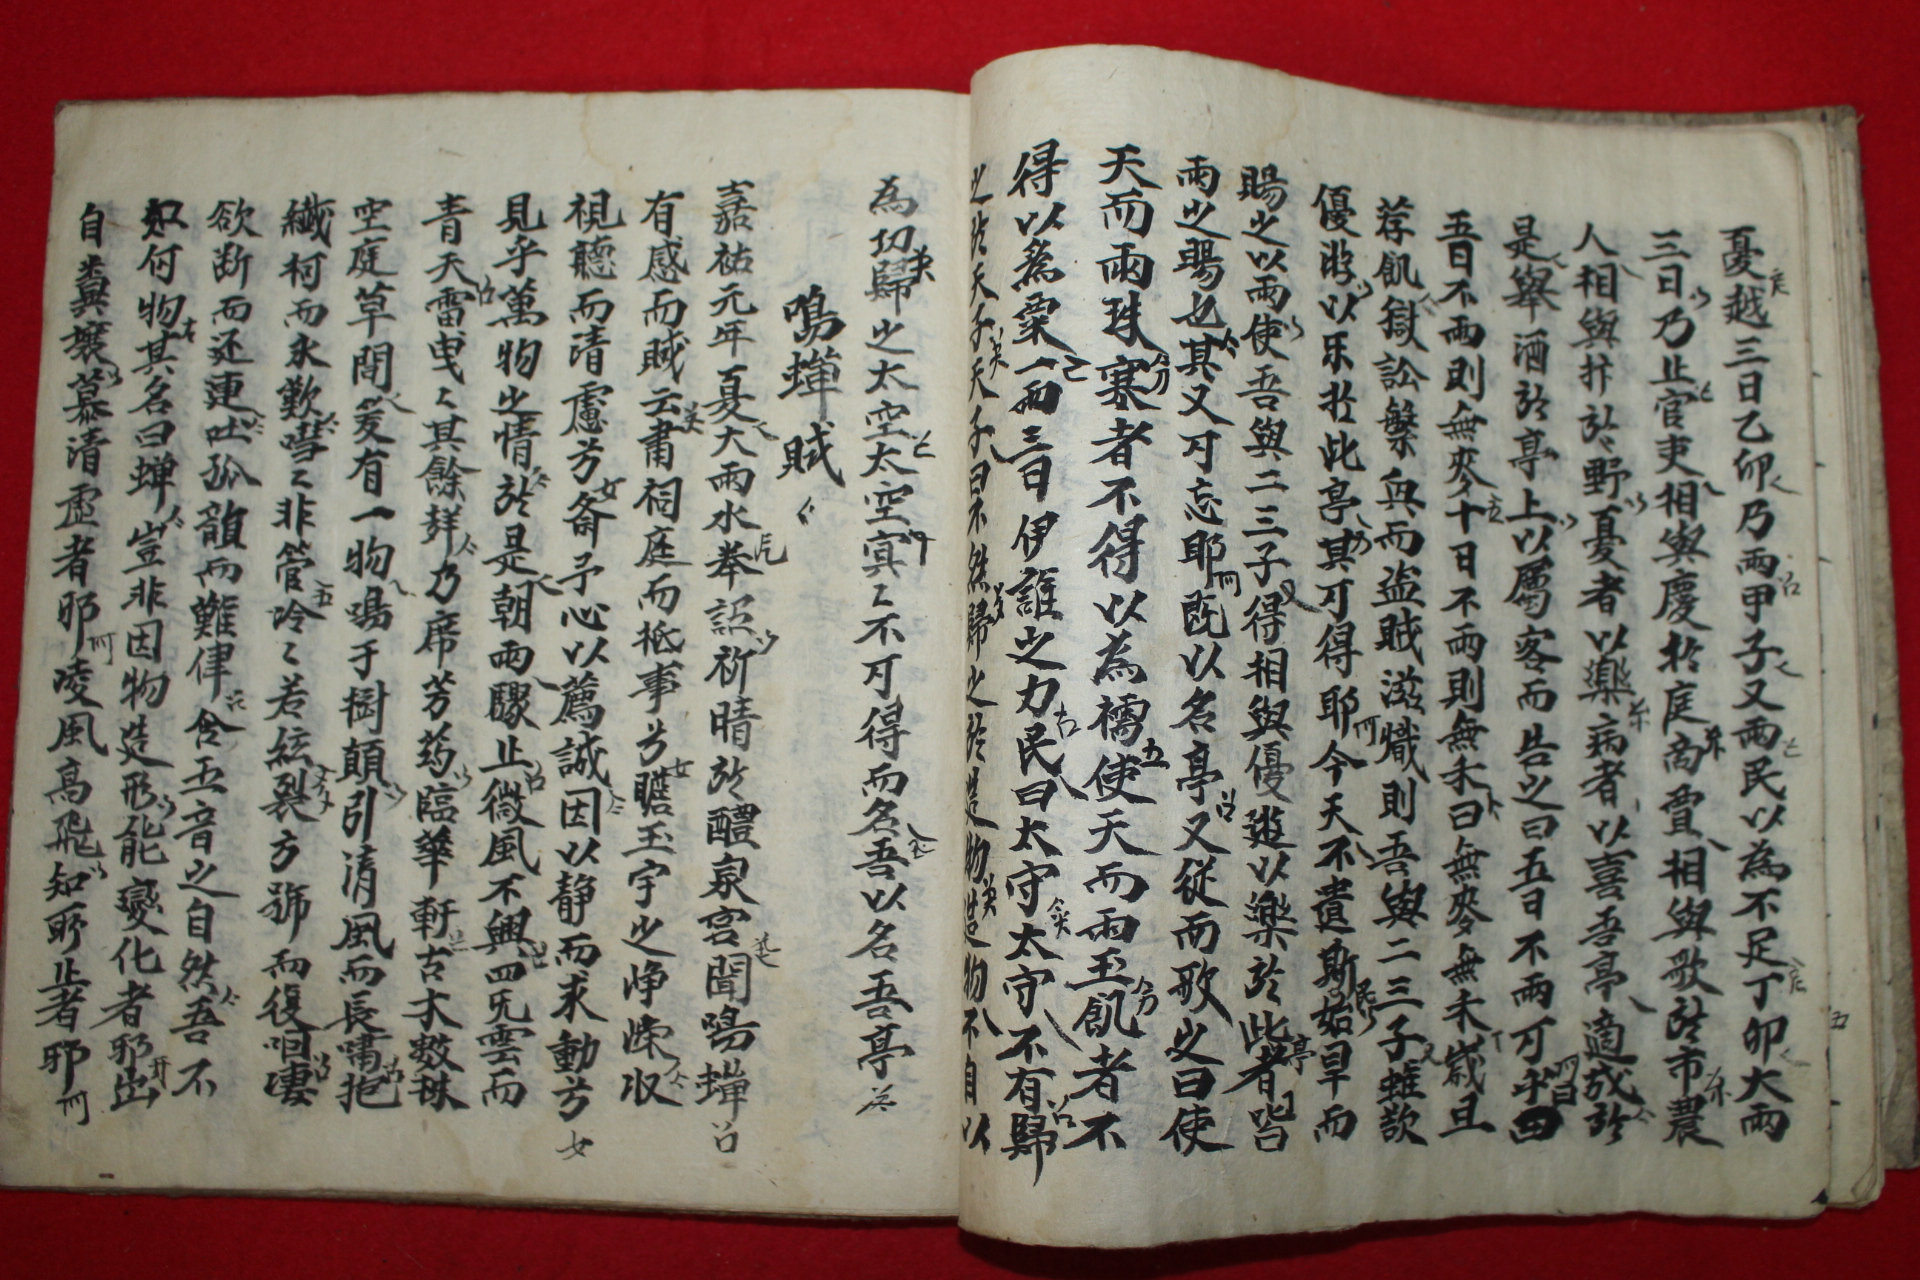 憂越三日乙卯乃雨甲子又雨民以為不足丁卯大雨
三日乃止官吏相與慶於庭商賈相與歌於市農
人相與抃於野憂者以樂病者以喜吾亭適成於
是舉酒於亭上以屬客而告之曰五日不雨可乎曰
五日不雨則無麥十日不雨則無禾曰無麥無禾歲且
荐飢獄訟繁興而盜賊滋熾則吾與二三子雖欲
優游以乐於此亭其可得耶今天不遺斯始旱而
賜之以雨使吾與二三子得相與優遊以樂於此亭者皆
雨之賜也其又可忘耶既以名亭又從而歌之曰使
天而雨珠寒者不得以為襦使天而雨玉飢者不
得以為粟一雨三日伊誰之力民曰太守太守不有歸
之於天子天子曰不然歸之於造物造物不自以
為功歸之太空太空冥〻不可得而名吾以名吾亭
鳴蟬賦
嘉祐元年夏大雨水奉詔祈晴於醴泉宮聞鳴蟬
有感而賦云肅祠庭而祗事兮瞻玉宇之崢嶸收
視聽而清慮兮齋予心以薦誠因以靜而求動兮
見乎萬物之情於是朝雨驟止微風不興四无雲而
青天雷曳〻其餘聲乃席芳葯臨華軒古木數株
空庭草間爰有一物鳴于樹顛引清風而長嘯抱
纖柯而永歎嘒〻非管泠〻若絃裂方號而復咽凄
欲断而还連吐孤韻而難律含五音之自然吾不
知何物其名曰蟬豈非因物造形能變化者邪出
自糞壤慕清虛者邪凌風高飛知所止者邪